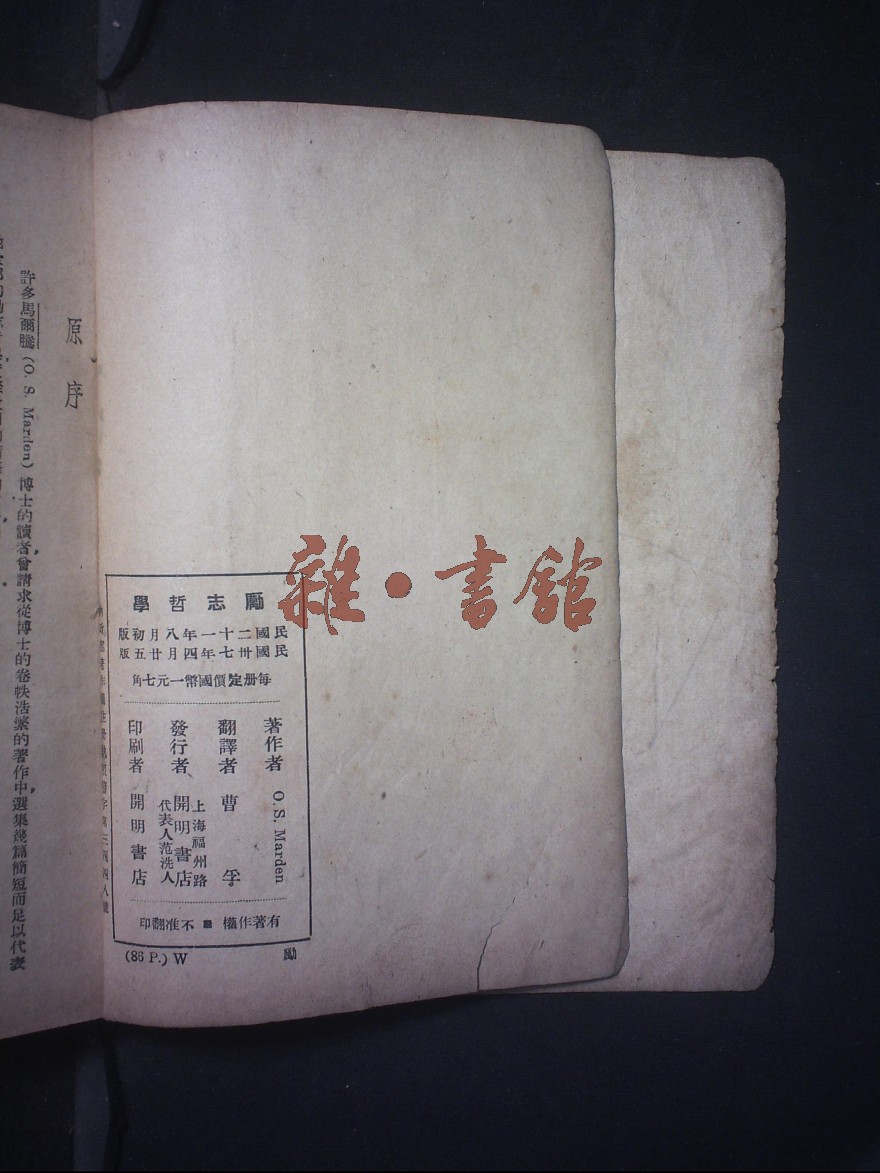 勵志哲學
民國二十一年八月初版
民國卅七年四月廿五版
每册定價國幣一元七角
著作者 O. S. Marden
翻譯者 曹孚
發行者 上海福州路
開明書店
代表人范洗人
印刷者 開明書店
有著作權 ■ 不准翻印
勵
(86 P.) W
原序
許多馬爾騰(O. S. Marden)博士的讀者,曾請求從博士的卷帙浩繁的著作中,選集幾篇簡短而足以代表
雜·書館